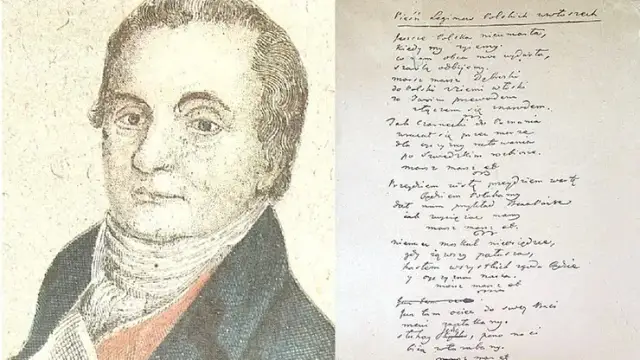 Pieśń Legionów Polskich we Włoszech
Jeszcze Polska nie umarła,
kiedy my żyjemy.
co nam obca moc wydarła,
szablą odbijemy.
marsz marsz Dąbrowski
do Polski z ziemi włoski
za Twoim przewodem
złączem się z narodem.
Jak Czarnecki do Poznania
wracał się przez morze
dla ojczyzny ratowania
po szwedzkim rozbiorze.
marsz marsz et
Przejdziem Wisłę przejdziem Wartę
będziem Polakamy
dał nam przykład Bonaparte
jak zwyciężać mamy
marsz marsz et
niemiec moskal nieosiędzie,
gdy jąwszy pałasza,
hasłem wszystkich zgoda będzie
y ojczyzna nasza.
marsz marsz et
Już tam
Już tam ociec do swej Basi
mówi zapłakany.
słuchaj, pono nasi
biją w tarabany.
marsz marsz et